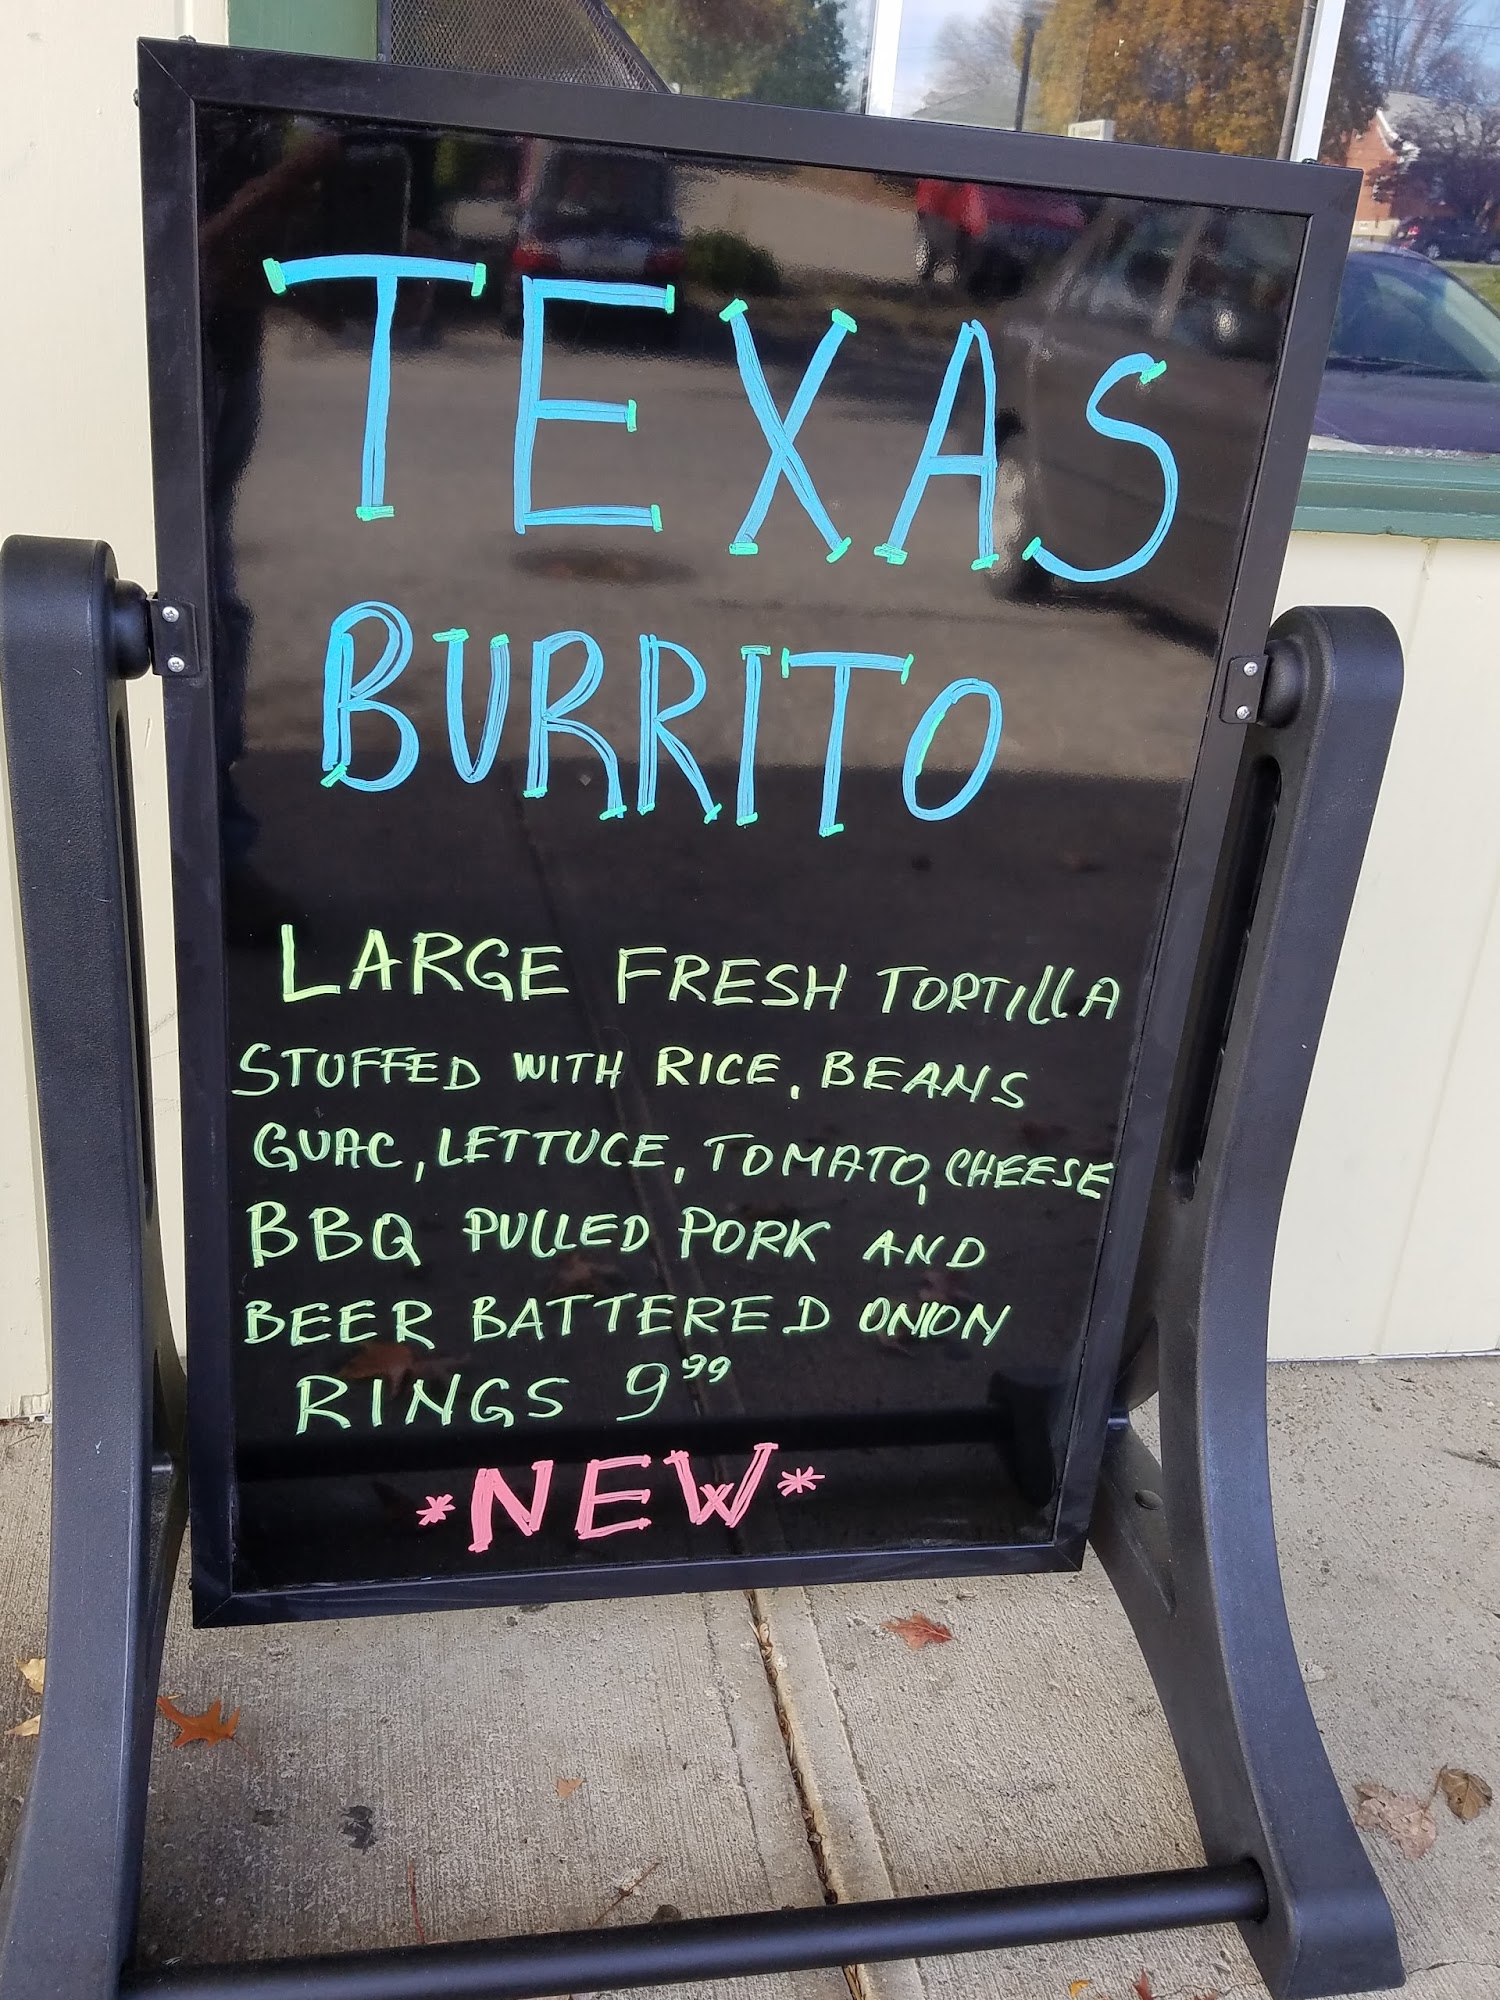 TEXAS
BURRITO
LARGE FRESH TORTILLA
STUFFED WITH RICE, BEANS
GUAC, LETTUCE, TOMATO, CHEESE
BBQ PULLED PORK AND
BEER BATTERED ONION
RINGS 9⁹⁹
*NEW*